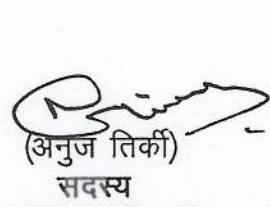 (अनुज तिर्की)
सदस्य